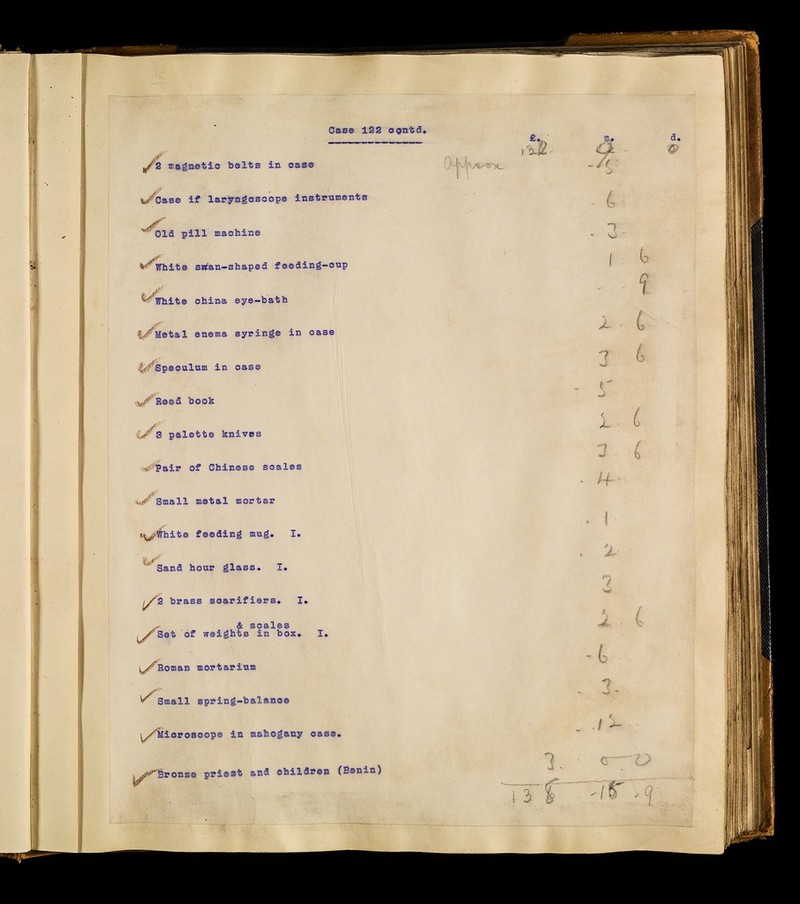 Case 122 contd.
£. s. d.
Approx 132. 9 - 0
2 magnetic belts in case - 5
Case if laryngoscope instruments - 6
Old pill machine - 3 -
White swan-shaped feeding-cup 1 6
White china eye-bath - - 9
Metal enema syringe in case 2 - 6
Speculum in case 3 6
Reed book - 5
3 palette knives 2 - 6
Pair of Chinese scales 3 - 6
Small metal mortar - 4 -
White feeding mug. I. - 1
Sand hour glass. I. - 2
2 brass scarifiers. I. 3
& scales
Set of weights in box. I. 2 - 6
Roman mortarium - 6
Small spring-balance - 3 -
Microscope in mahogany case. - 12 -
Bronze priest and children (Benin) 3. 0. 0
138 - 15 - 9